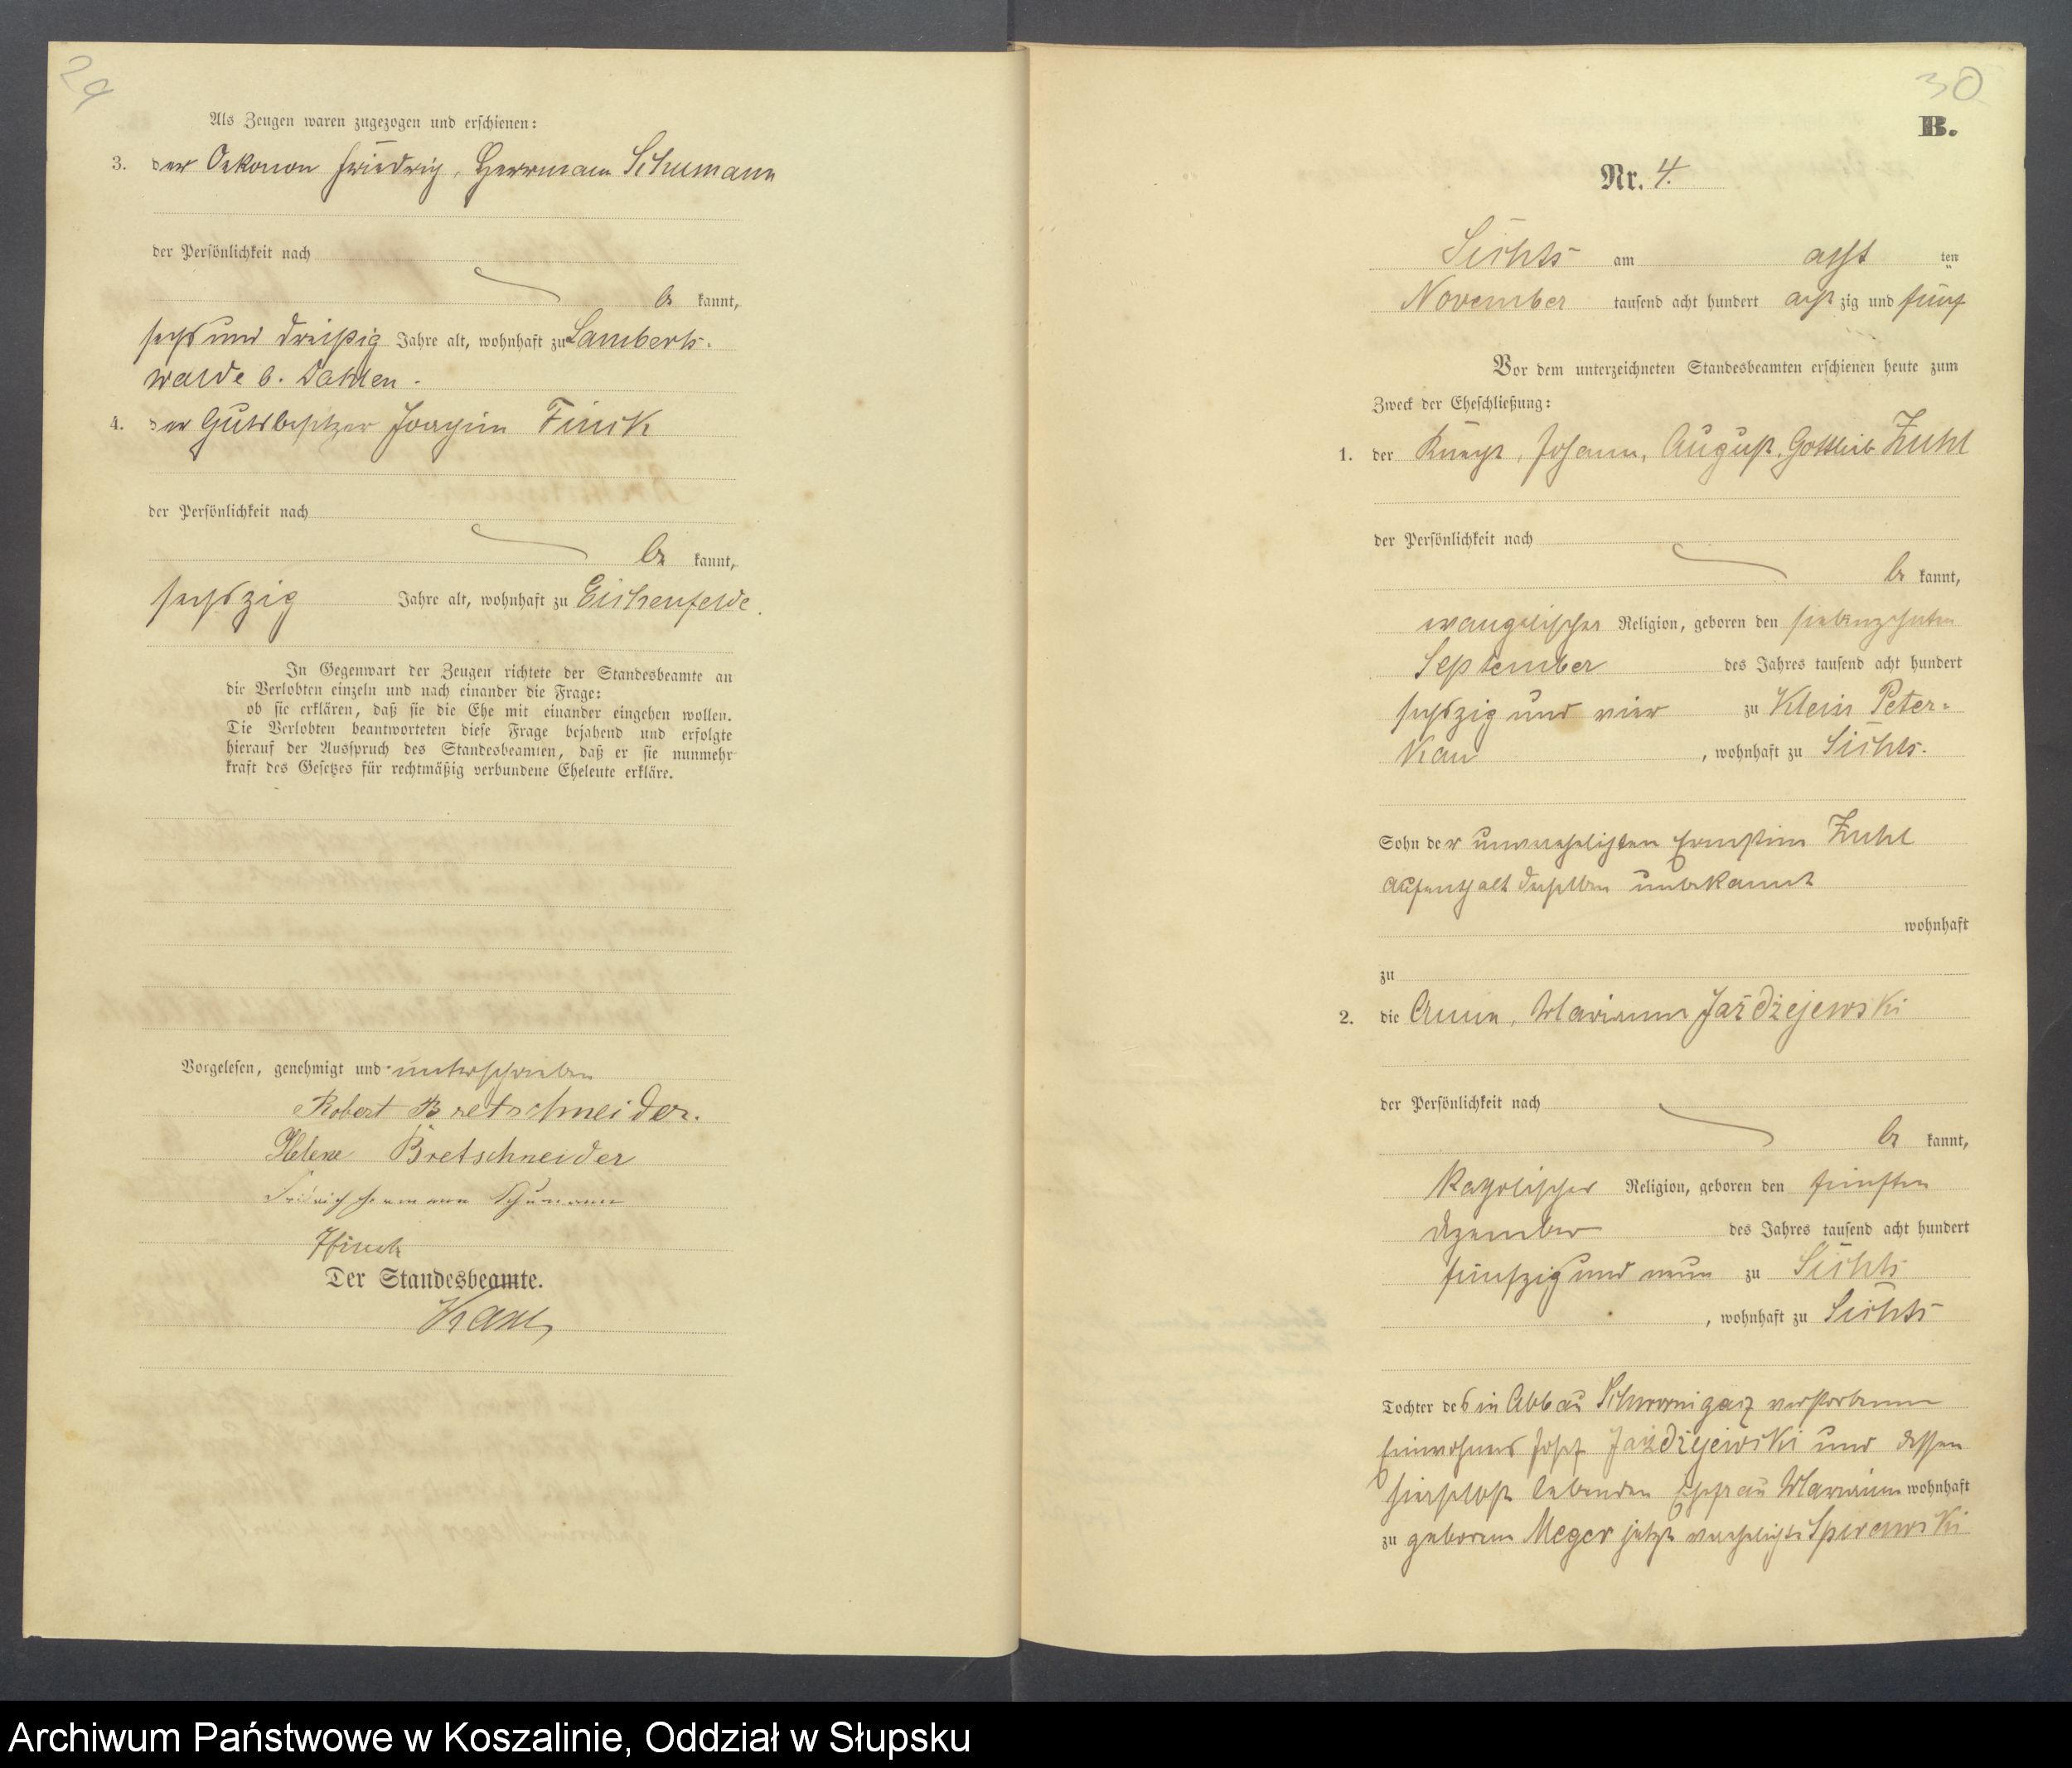 29
Als Zeugen waren zugezogen und erschienen:
3. der Oekonom Friedrich, Herrmann Schumann
der Persönlichkeit nach
be kannt,
sechs und dreißig Jahre alt, wohnhaft zu Lamberts-
walde b. Dahlen.
4. der Gutsbesitzer Joachim Finck
der Persönlichkeit nach
be kannt,
sechszig Jahre alt, wohnhaft zu Eichenfelde.
In Gegenwart der Zeugen richtete der Standesbeamte an
die Verlobten einzeln und nach einander die Frage:
ob sie erklären, daß sie die Ehe mit einander eingehen wollen.
Die Verlobten beantworteten diese Frage bejahend und erfolgte
hierauf der Ausspruch des Standesbeamten, daß er sie nunmehr
kraft des Gesetzes für rechtmäßig verbundene Eheleute erkläre.
Vorgelesen, genehmigt und unterschrieben
Robert Bretschneider.
Helene Bretschneider
Friedrich Hermann Schumann
JFinck
Der Standesbeamte.
30
B.
Nr. 4.
Sichts am acht ten
November tausend acht hundert acht zig und fünf
Vor dem unterzeichneten Standesbeamten erschienen heute zum
Zweck der Eheschließung:
1. der Knecht, Johann, August, Gottlieb Zuhl
der Persönlichkeit nach
be kannt,
evangelischer Religion, geboren den siebenzehnten
September des Jahres tausend acht hundert
sechszig und vier zu Klein Peter-
kau, wohnhaft zu Sichts.
Sohn der unverehelichten Ernstine Zuhl
Aufenthalt derselben unbekannt
wohnhaft
zu
2. die Anna, Marianna Jażdżejewski
der Persönlichkeit nach
be kannt,
katholischer Religion, geboren den fünften
Dezember des Jahres tausend acht hundert
fünfzig und neun zu Sichts
, wohnhaft zu Sichts
Tochter des in Abbau verstorbenen
Einwohners Josef Jażdżejewski und dessen
hierselbst lebenden Ehefrau Marianna wohnhaft
zu geborene Meger jetzt verehelichte Spierawski
Archiwum Państwowe w Koszalinie, Oddział w Słupsku